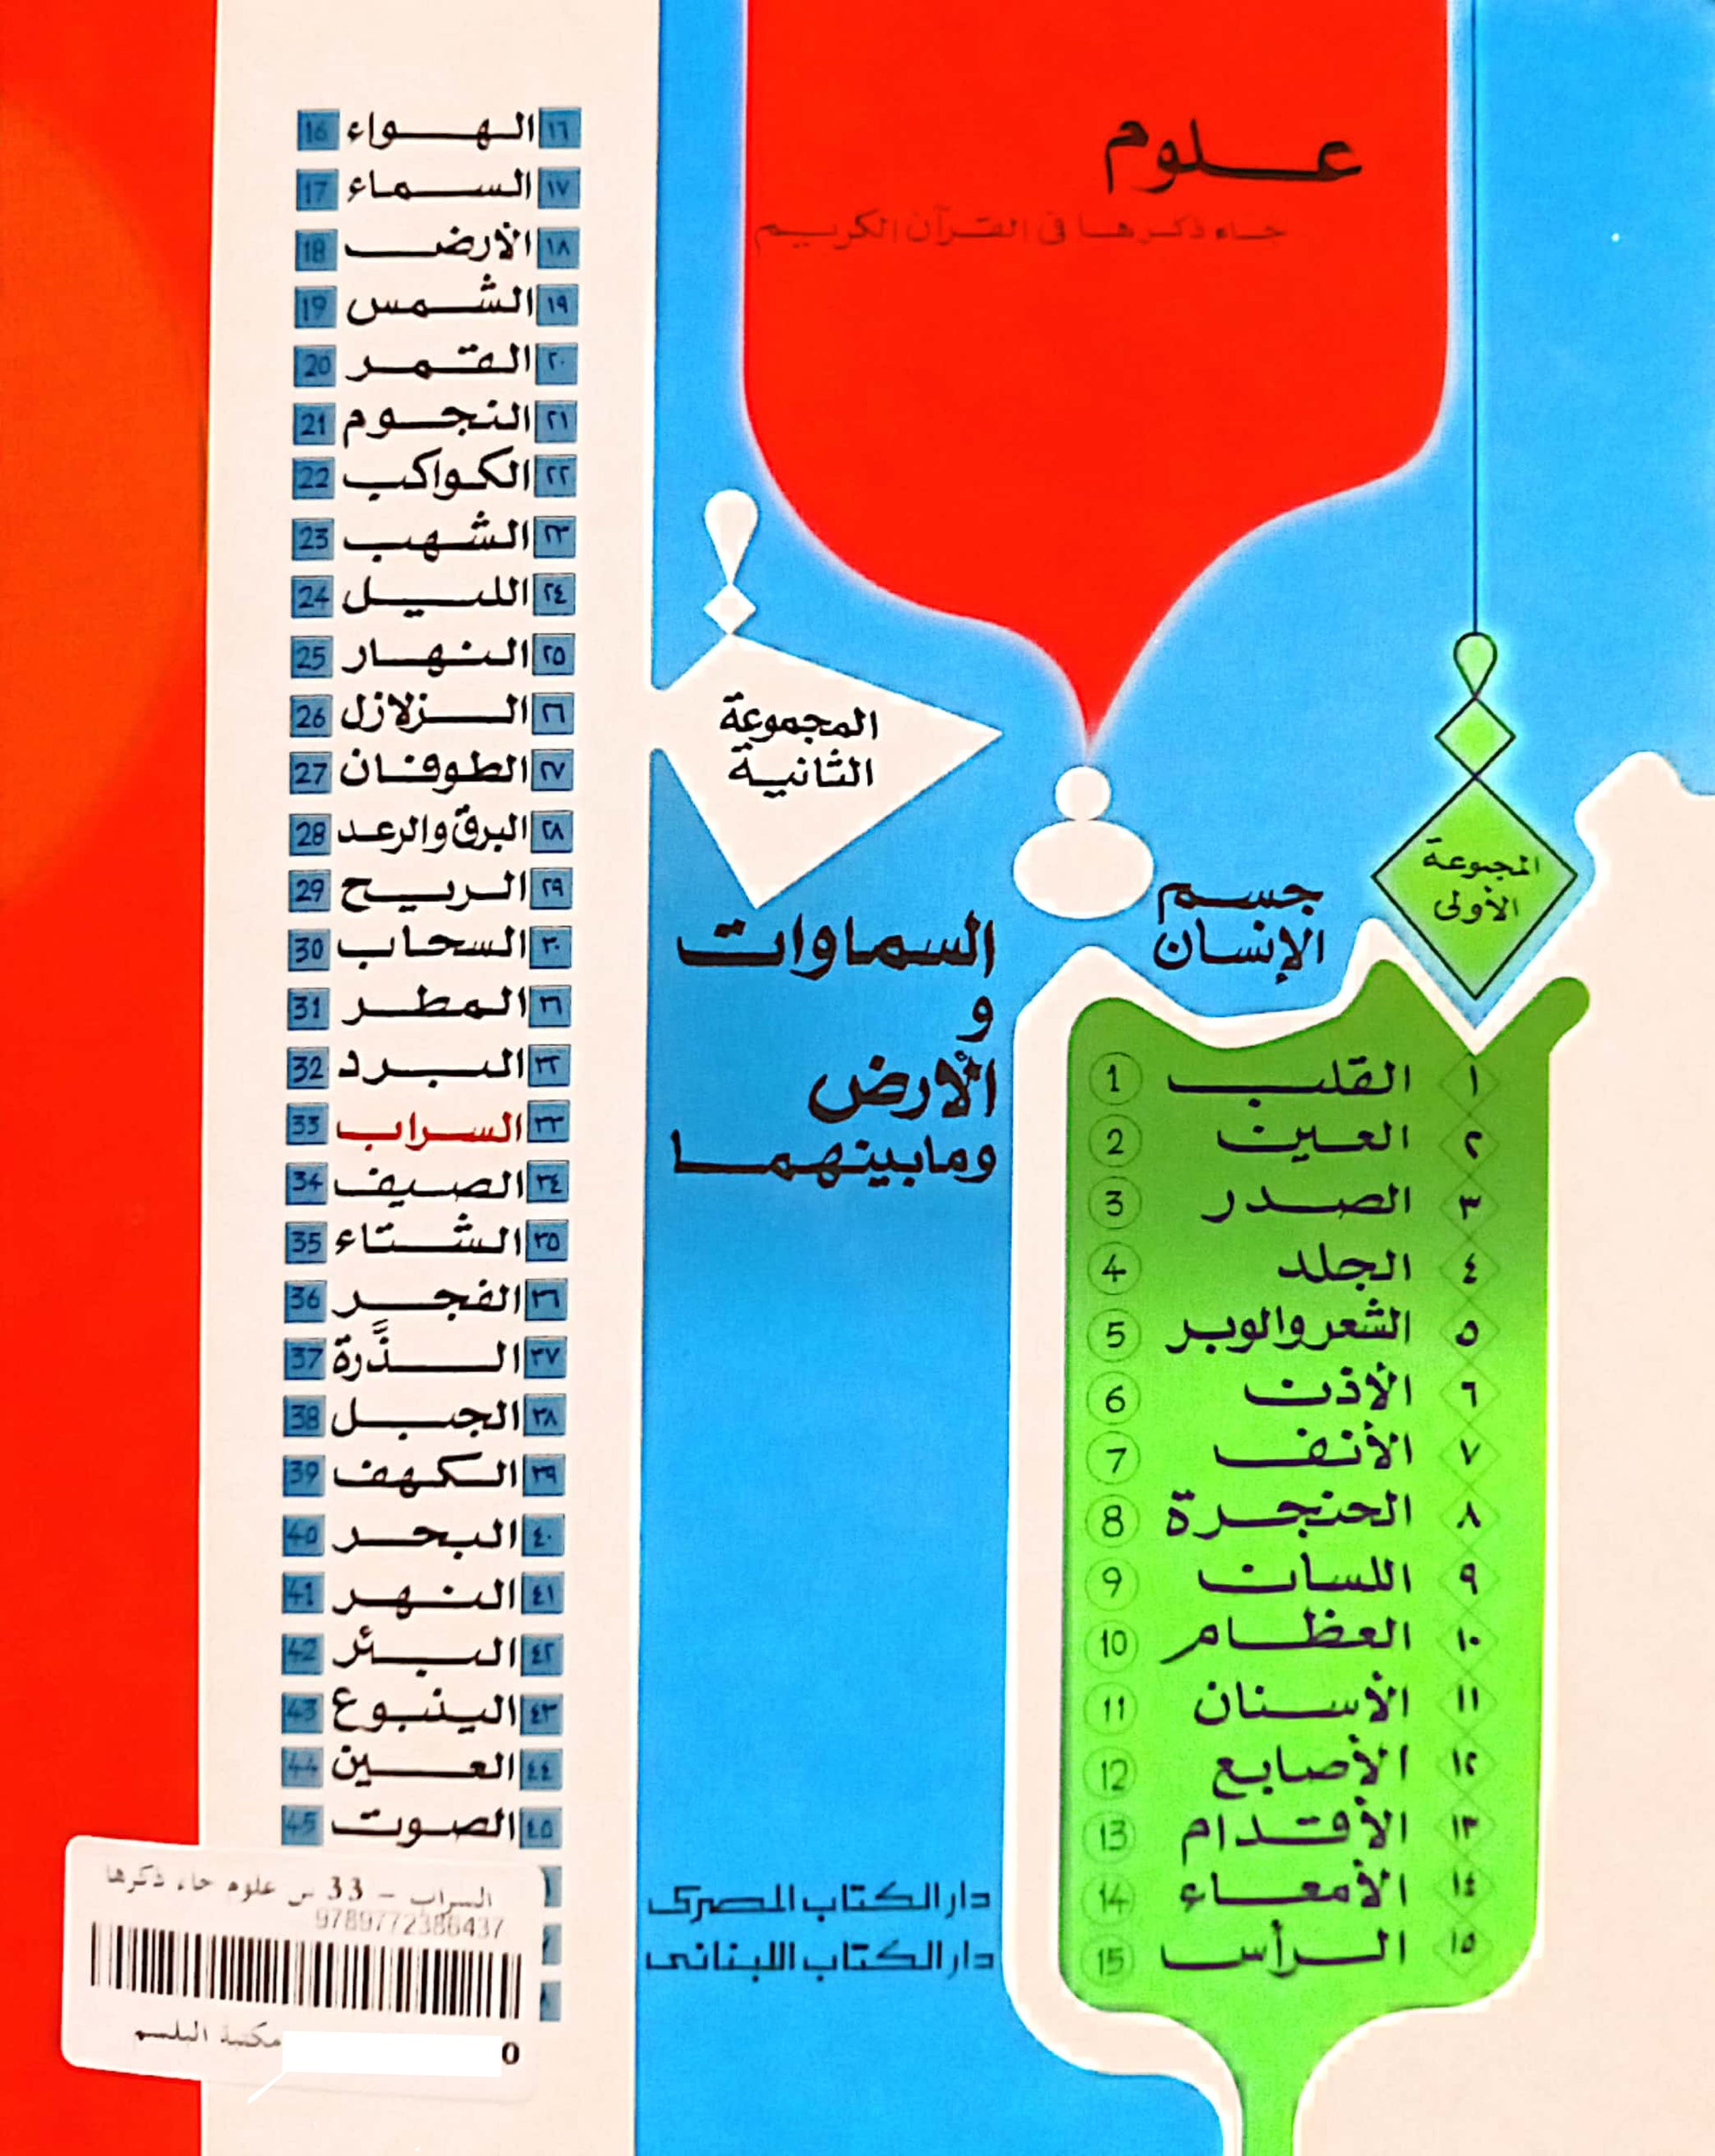 علوم
جاء ذكرها في القرآن الكريم
المجموعة
الأولى
جسم
الإنسان
١ القلب 1
٢ العين 2
٣ الصدر 3
٤ الجلد 4
٥ الشعر والوبر 5
٦ الأذن 6
٧ الأنف 7
٨ الحنجرة 8
٩ اللسان 9
١٠ العظام 10
١١ الأسنان 11
١٢ الأصابع 12
١٣ الأقدام 13
١٤ الأمعاء 14
١٥ الرأس 15
المجموعة
الثانية
السماوات
و
الأرض
وما بينهما
دار الكتاب المصرى
دار الكتاب اللبنانى
١٦ الهواء 16
١٧ السماء 17
١٨ الأرض 18
١٩ الشمس 19
٢٠ القمر 20
٢١ النجوم 21
٢٢ الكواكب 22
٢٣ الشهب 23
٢٤ الليل 24
٢٥ النهار 25
٢٦ الزلازل 26
٢٧ الطوفان 27
٢٨ البرق والرعد 28
٢٩ الريح 29
٣٠ السحاب 30
٣١ المطر 31
٣٢ البرد 32
٣٣ السراب 33
٣٤ الصيف 34
٣٥ الشتاء 35
٣٦ الفجر 36
٣٧ الذَّرة 37
٣٨ الجبل 38
٣٩ الكهف 39
٤٠ البحر 40
٤١ النهر 41
٤٢ البئر 42
٤٣ الينبوع 43
٤٤ العين 44
٤٥ الصوت 45
السراب - 33 س علوم جاء ذكرها
9789772386437
مكتبة البلسم
0